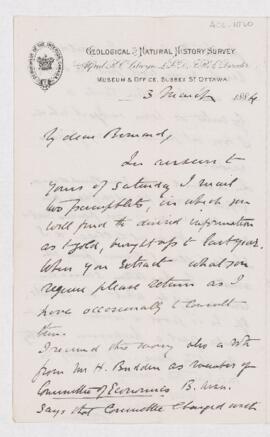 GEOLOGICAL & NATURAL HISTORY SURVEY
Alfred R. C. Selwyn L.L.D., F.R.S. Director
MUSEUM & OFFICE, SUSSEX ST OTTAWA
3 March 1884
My dear Bernard,
In answer to
yours of Saturday I mail
two pamphlets, in which you
will find the desired information
as to gold, brought up to last year.
When you extract what you
require please return as I
have occasionally to consult
them.
I received this morning also a
from Mr H. as member of
Committee of Economics B. Assn.
Says that Committee charged with